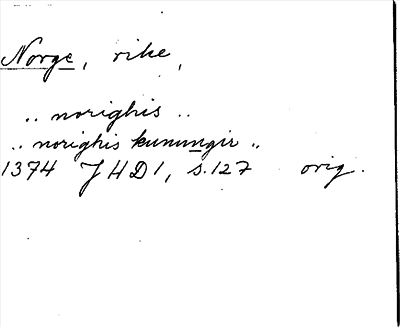 Norge, rike,
.. norighis ..
.. norighis kunungir ..
1374 JHD1, s. 127 orig.